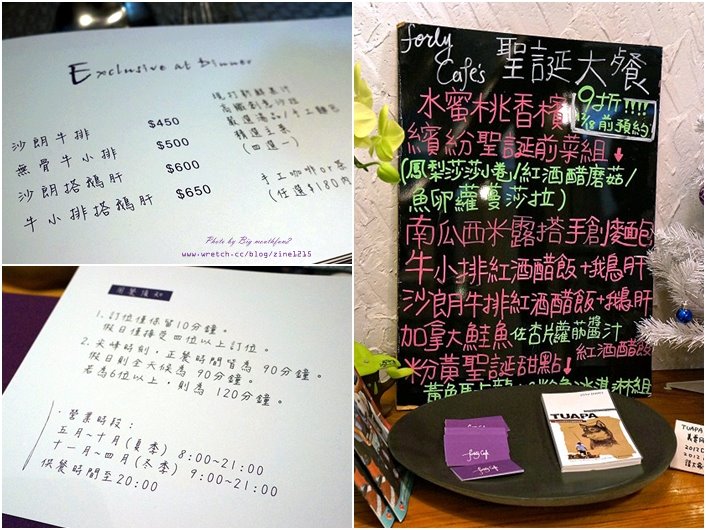 Exclusive at Dinner
沙朗牛排 $450
無骨牛小排 $500
沙朗搭鵝肝 $600
牛小排搭鵝肝 $650
現打新鮮果汁
高纖創意沙拉
嚴選湯品/手工麵包
精選主菜
(四選一)
手工咖啡or茶
(任選$180內
Photo by Big mouthfun?
www.wretch.cc/blog/zine1215
用餐須知
1.訂位僅保留10分鐘。
假日僅接受四位以上訂位。
2.尖峰時刻,正餐時間皆為 90分鐘。
假日則全天候為 90分鐘。
若為6位以上,則為 120分鐘。
·營業時段:
五月~十月(夏季) 8:00~21:00
十一月~四月(冬季) 9:00~21:00
供餐時間至20:00
forly
Cafe's 聖誕大餐
水蜜桃香檳
9折!!!!
12/18前預約
繽紛聖誕前菜組↓
(鳳梨莎莎小卷/紅酒醋蘑菇/
魚卵蘿蔓莎拉)
南瓜西米露搭手創麵包
牛小排紅酒醋飯+鵝肝
沙朗牛排紅酒醋飯+鵝肝
加拿大鮭魚佐杏片蘿筍醬汁
紅酒醋飯
粉黃聖誕甜點↓
冰淇淋組
TUAPA
forly Cafe
TUAPA